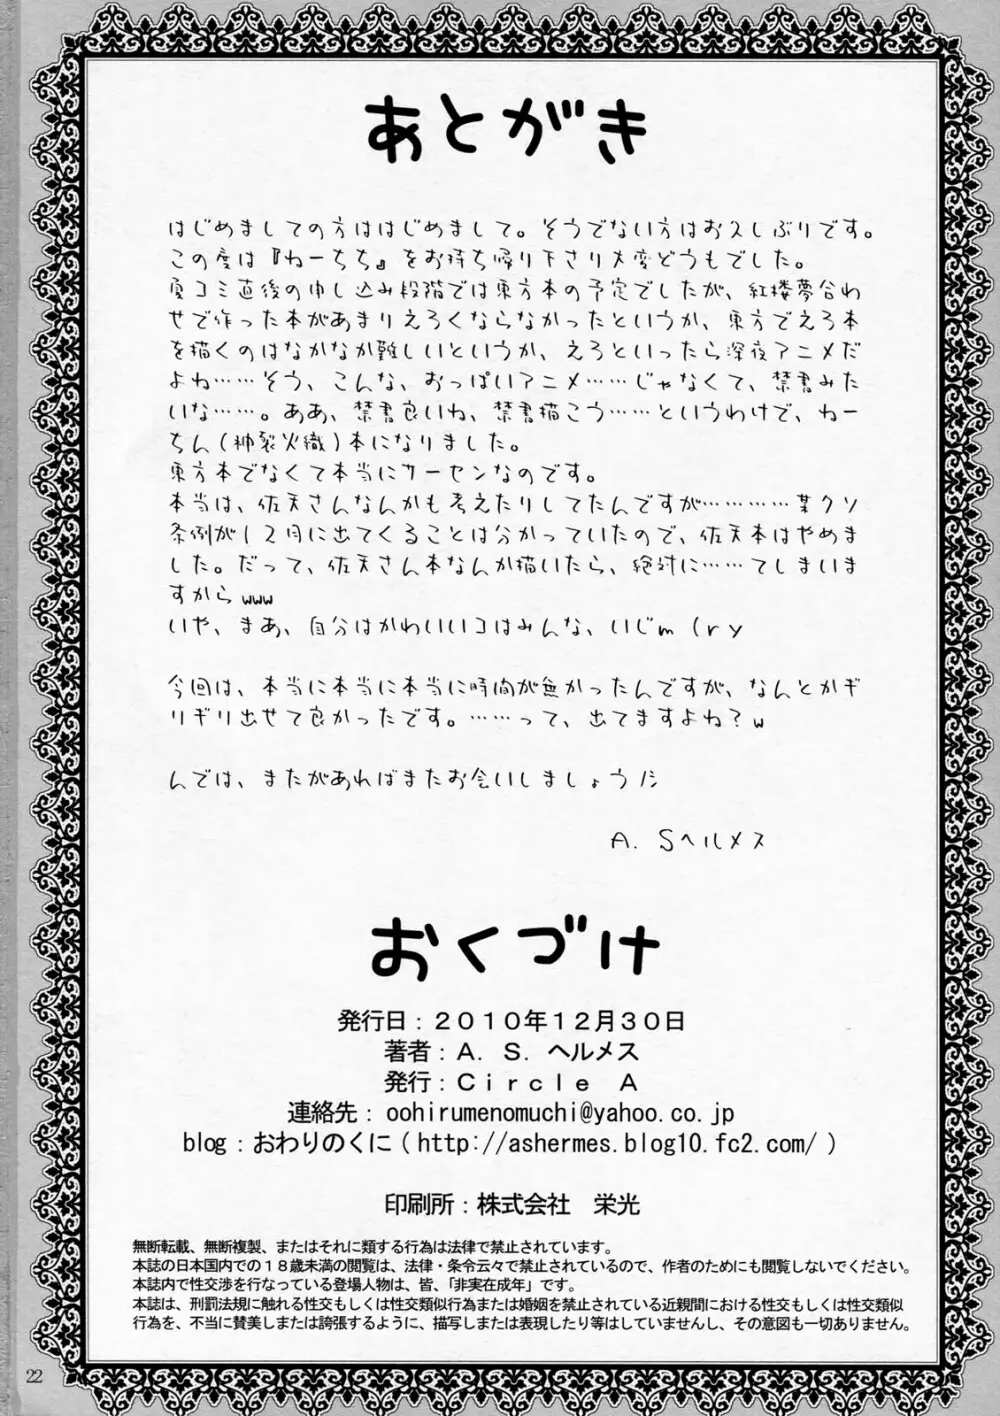 あとがき
はじめましての方ははじめまして。そうでない方はお久しぶりです。
この度は『ねーちち』をお持ち帰り下さり大変どうもでした。
夏コミ直後の申し込み段階では東方本の予定でしたが、紅楼夢合わ
せで作った本があまりえろくならなかったというか、東方でえろ本
を描くのはなかなか難しいというか、えろといったら深夜アニメだ
よね……そう、こんな、おっぱいアニメ……じゃなくて、禁書みた
いな……。ああ、禁書良いね、禁書描こう……というわけで、ねー
ちん(神裂火織)本になりました。
東方本でなくて本当にサーセンなのです。
本当は、佐天さんなんかも考えたりしてたんですが…………某クソ
条例が12月に出てくることは分かっていたので、佐天本はやめま
した。だって、佐天さん本なんか描いたら、絶対に……てしまいま
すからwww
いや、まあ、自分はかわいいコはみんな、いじm(ry
今回は、本当に本当に本当に時間が無かったんですが、なんとかギ
リギリ出せて良かったです。……って、出てますよね?w
んでは、またがあればまたお会いしましょうﾉｼ
A．Sヘルメス
おくづけ
発行日：２０１０年１２月３０日
著者：Ａ．Ｓ．ヘルメス
発行：Ｃｉｒｃｌｅ　Ａ
連絡先：oohirumenomuchi@yahoo.co.jp
blog：おわりのくに(http://ashermes.blog10.fc2.com/)
印刷所：株式会社　栄光
無断転載、無断複製、またはそれに類する行為は法律で禁止されています。
本誌の日本国内での１８歳未満の閲覧は、法律・条令云々で禁止されているので、作者のためにも閲覧しないでください。
本誌内で性交渉を行なっている登場人物は、皆、「非実在成年」です。
本誌は、刑罰法規に触れる性交もしくは性交類似行為または婚姻を禁止されている近親間における性交もしくは性交類似
行為を、不当に賛美しまたは誇張するように、描写しまたは表現したり等はしていませんし、その意図も一切ありません。
22